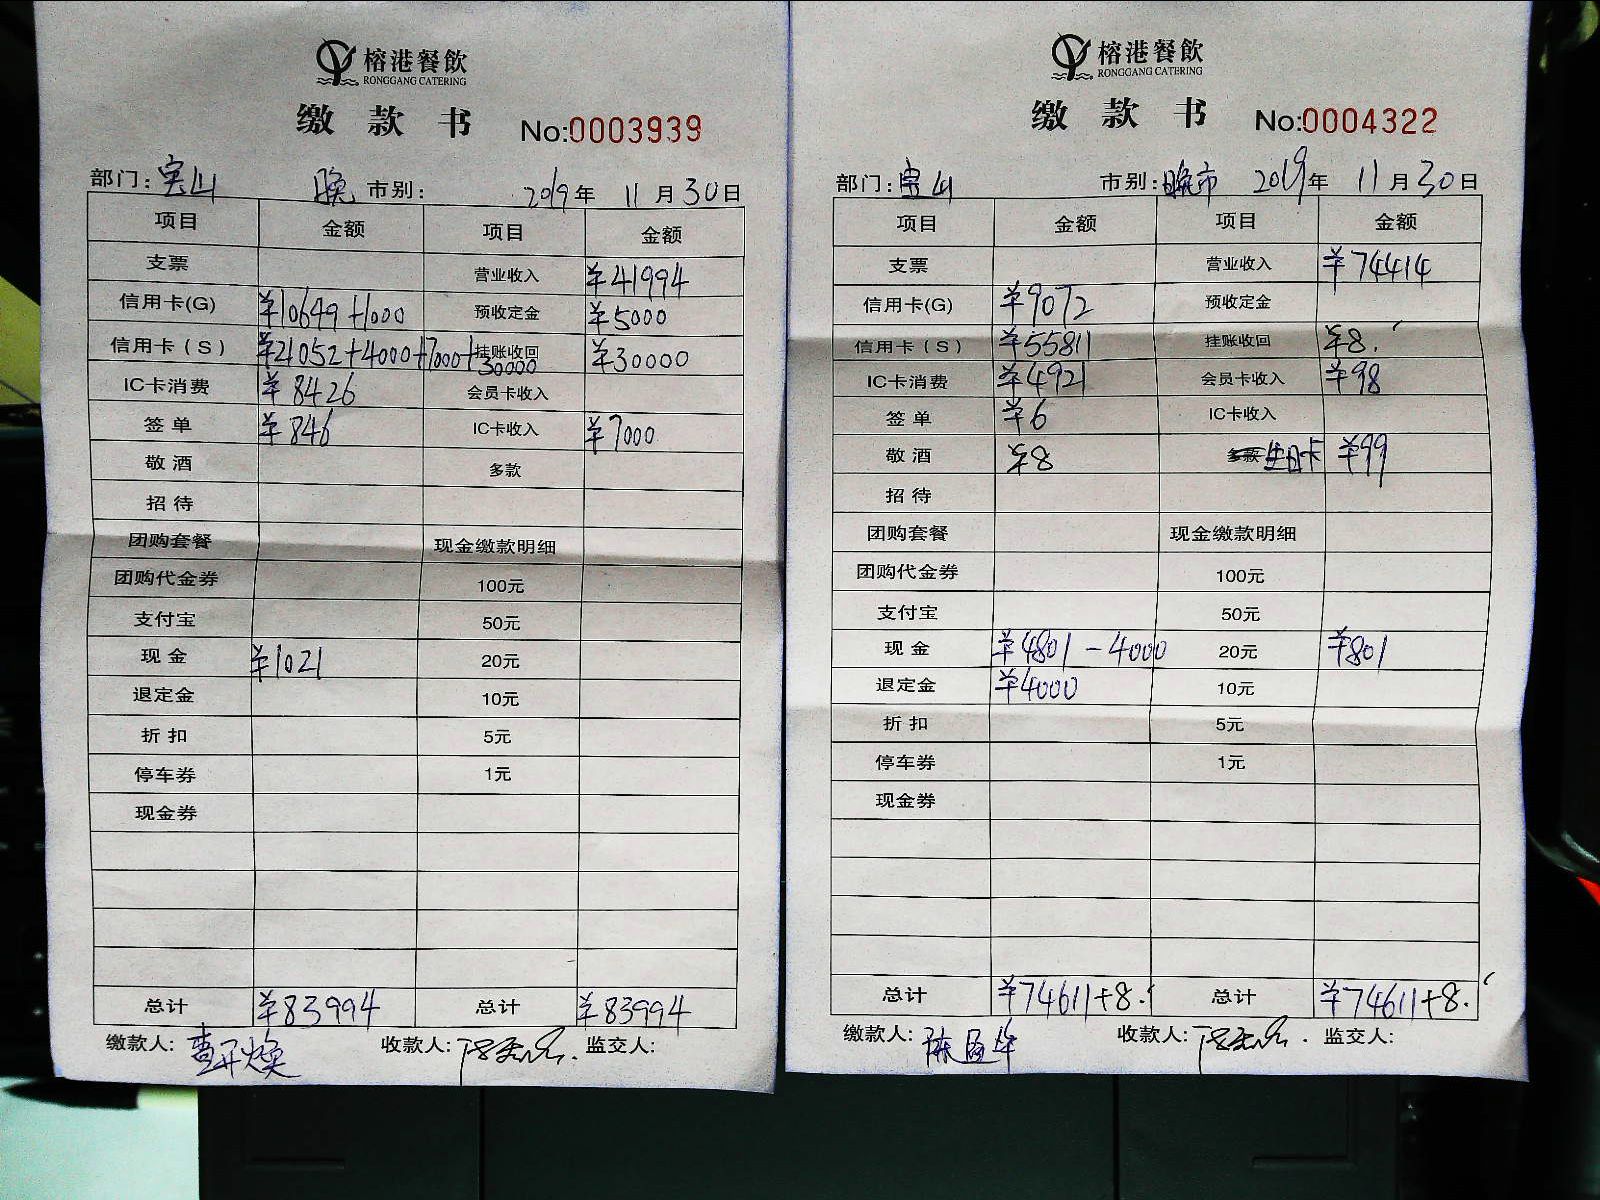 榕港餐飲
RONGGANG CATERING
缴款书 No:0003939
部门: 宝山 晚 市别: 2019年 11月30日
项目 金额 项目 金额
支票 营业收入 ¥41994
信用卡(G) ¥10649+1000 预收定金 ¥5000
信用卡(S) ¥21052+4000+7000+30000 挂账收回 ¥30000
IC卡消费 ¥8426 会员卡收入
签单 ¥846 IC卡收入 ¥7000
敬酒 多款
招待
团购套餐 现金缴款明细
团购代金券 100元
支付宝 50元
现金 ¥1021 20元
退定金 10元
折扣 5元
停车券 1元
现金券
总计 ¥83994 总计 ¥83994
缴款人: 收款人: 监交人:
榕港餐飲
RONGGANG CATERING
缴款书 No:0004322
部门: 宝山 市别: 晚市 2019年 11月30日
项目 金额 项目 金额
支票 营业收入 ¥74414
信用卡(G) ¥9072 预收定金
信用卡(S) ¥55811 挂账收回 ¥8.
IC卡消费 ¥4921 会员卡收入 ¥98
签单 ¥6 IC卡收入
敬酒 ¥8 多款 生日卡 ¥99
招待
团购套餐 现金缴款明细
团购代金券 100元
支付宝 50元
现金 ¥4801-4000 20元 ¥801
退定金 ¥4000 10元
折扣 5元
停车券 1元
现金券
总计 ¥74611+8. 总计 ¥74611+8.
缴款人: 收款人: 监交人: